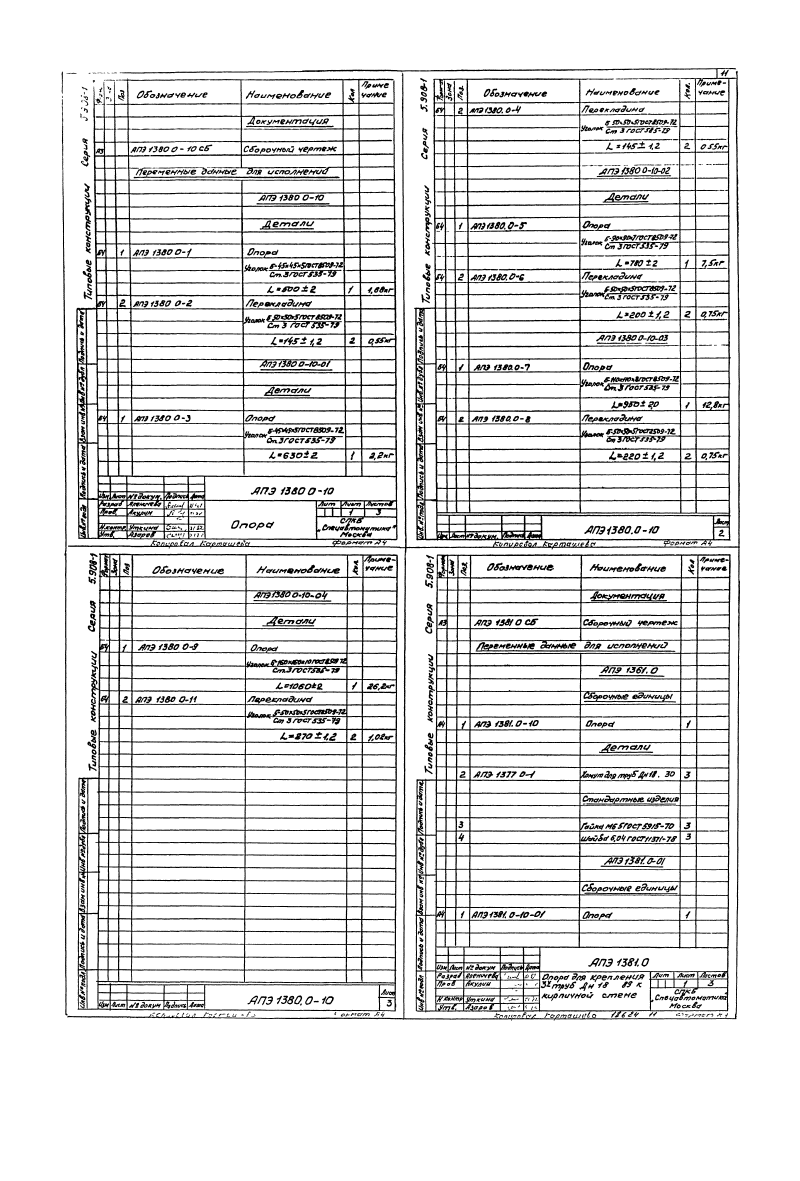 11
Серия 5.908-1
Типовые конструкции
Поз Обозначение Наименование Кол Примечание
Документация
А3 АПЭ 1380 0-10 СБ Сборочный чертеж
Переменные данные для исполнений
АПЭ 1380 0-10
Детали
Б4 1 АПЭ 1380 0-1 Опора
Уголок Б-45х45х5 ГОСТ 8509-72
Ст.3 ГОСТ 535-79
L=600±2 1 1,88кг
Б4 2 АПЭ 1380 0-2 Перекладина
Уголок Б-50х50х5 ГОСТ 8509-72
Ст 3 ГОСТ 535-79
L=145±1,2 2 0,55кг
АПЭ 1380 0-10-01
Детали
Б4 1 АПЭ 1380 0-3 Опора
Уголок Б-45х45х5 ГОСТ 8509-72
Ст.3 ГОСТ 535-79
L=630±2 1 2,2кг
АПЭ 1380 0-10
Изм Лист № докум. Подпись Дата
Разраб Аленичева
Пров Акулин
Н.контр Уткина
Утв. Азаров
Опора
Лит Лист Листов
1 3
СПКБ
"Спецавтоматика"
Москва
Копировал Карташева Формат А4
Серия 5.908-1
Типовые конструкции
Формат Зона Поз. Обозначение Наименование Кол. Примечание
Б4 2 АПЭ 1380.0-4 Перекладина
Уголок Б-50х50х5 ГОСТ 8509-72
Ст 3 ГОСТ 535-79
L=145±1,2 2 0 55кг
АПЭ 1380 0-10-02
Детали
Б4 1 АПЭ 1380.0-5 Опора
Уголок Б-90х90х7 ГОСТ 8509-72
Ст 3 ГОСТ 535-79
L=780±2 1 7,5кг
Б4 2 АПЭ 1380.0-6 Перекладина
Уголок Б-50х50х5 ГОСТ 8509-72
Ст 3 ГОСТ 535-79
L=200±1,2 2 0,75кг
АПЭ 1380 0-10-03
Детали
Б4 1 АПЭ 1380.0-7 Опора
Уголок Б-110х110х8 ГОСТ 8509-72
Ст 3 ГОСТ 535-79
L=950±20 1 12,8кг
Б4 2 АПЭ 1380.0-8 Перекладина
Уголок Б-50х50х5 ГОСТ 8509-72
Ст 3 ГОСТ 535-79
L=220±1,2 2 0,75кг
АПЭ 1380.0-10
Изм Лист № докум. Подпись Дата
Лист
2
Копировал Карташева Формат А4
Серия 5.908-1
Типовые конструкции
Формат Зона Поз Обозначение Наименование Кол. Примечание
АПЭ 1380 0-10-04
Детали
Б4 1 АПЭ 1380 0-9 Опора
Уголок Б-160х160х10 ГОСТ 8509-72
Ст.3 ГОСТ 535-79
L=1060±2 1 26,2кг
Б4 2 АПЭ 1380 0-11 Перекладина
Уголок Б-50х50х5 ГОСТ 8509-72
Ст 3 ГОСТ 535-79
L=270±1,2 2 1,02кг
АПЭ 1380.0-10
Изм Лист № докум Подпись Дата
Лист
3
Формат А4
Серия 5.908-1
Типовые конструкции
Формат Зона Поз Обозначение Наименование Кол Примечание
Документация
А3 АПЭ 1381 0 СБ Сборочный чертеж
Переменные данные для исполнений
АПЭ 1361.0
Сборочные единицы
А4 1 АПЭ 1381. 0-10 Опора 1
Детали
2 АПЭ 1377 0-1 Хомут для труб Дн 18. 30 3
Стандартные изделия
3 Гайка М6 5 ГОСТ 5915-70 3
4 Шайба 6,04 ГОСТ 11371-78 3
АПЭ 1381.0-01
Сборочные единицы
А4 1 АПЭ 1381. 0-10-01 Опора 1
АПЭ 1381.0
Изм Лист № докум Подпись Дата
Разраб Аленичева
Пров Акулин
Н контр Уткина
Утв. Азаров
Опора для крепления
3х труб Дн 18 89 к
кирпичной стене
Лит Лист Листов
1 3
СПКБ
"Спецавтоматика"
Москва
Копировал Карташева 18624 11 Формат А4